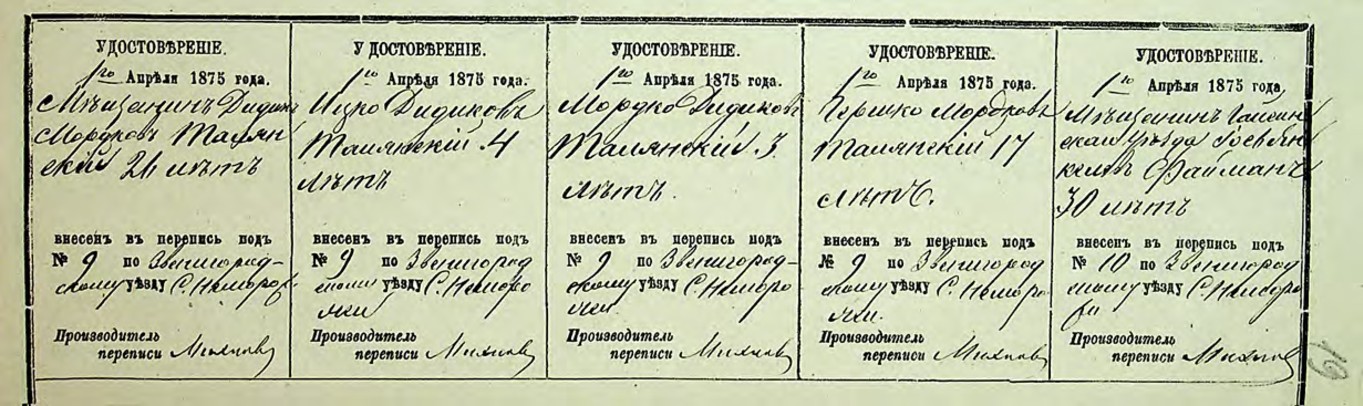 УДОСТОВѢРЕНІЕ.
1го Апрѣля 1875 года.
Мѣщанинъ Дидикъ
Мордковъ Талян
скій 26 лѣтъ
внесенъ въ перепись подъ
№ 9 по Звенигород-
скому уѣзду С. Неморож
Производитель
переписи
УДОСТОВѢРЕНІЕ.
1го Апрѣля 1875 года.
Ицко Дидиковъ
Талянскій 4
лѣтъ
внесенъ въ перепись подъ
№ 9 по Звенигород
скому уѣзду С. Неморо
жи
Производитель
переписи
УДОСТОВѢРЕНІЕ.
1го Апрѣля 1875 года.
Мордко Дидиковъ
Талянскій 3
лѣтъ.
внесенъ въ перепись подъ
№ 9 по Звенигород-
скому уѣзду С. Неморо
жи.
Производитель
переписи
УДОСТОВѢРЕНІЕ.
1го Апрѣля 1875 года.
Гершко Мордковъ
Талянскій 17
лѣтъ.
внесенъ въ перепись подъ
№ 9 по Звенигород
скому уѣзду С. Неморо
жи.
Производитель
переписи
УДОСТОВѢРЕНІЕ.
1го Апрѣля 1875 года.
Мѣщанинъ Гайсин
скаго Уѣзда
Файманъ
30 лѣтъ
внесенъ въ перепись подъ
№ 10 по Звенигород
скому уѣзду С. Неморо
жи
Производитель
переписи
19